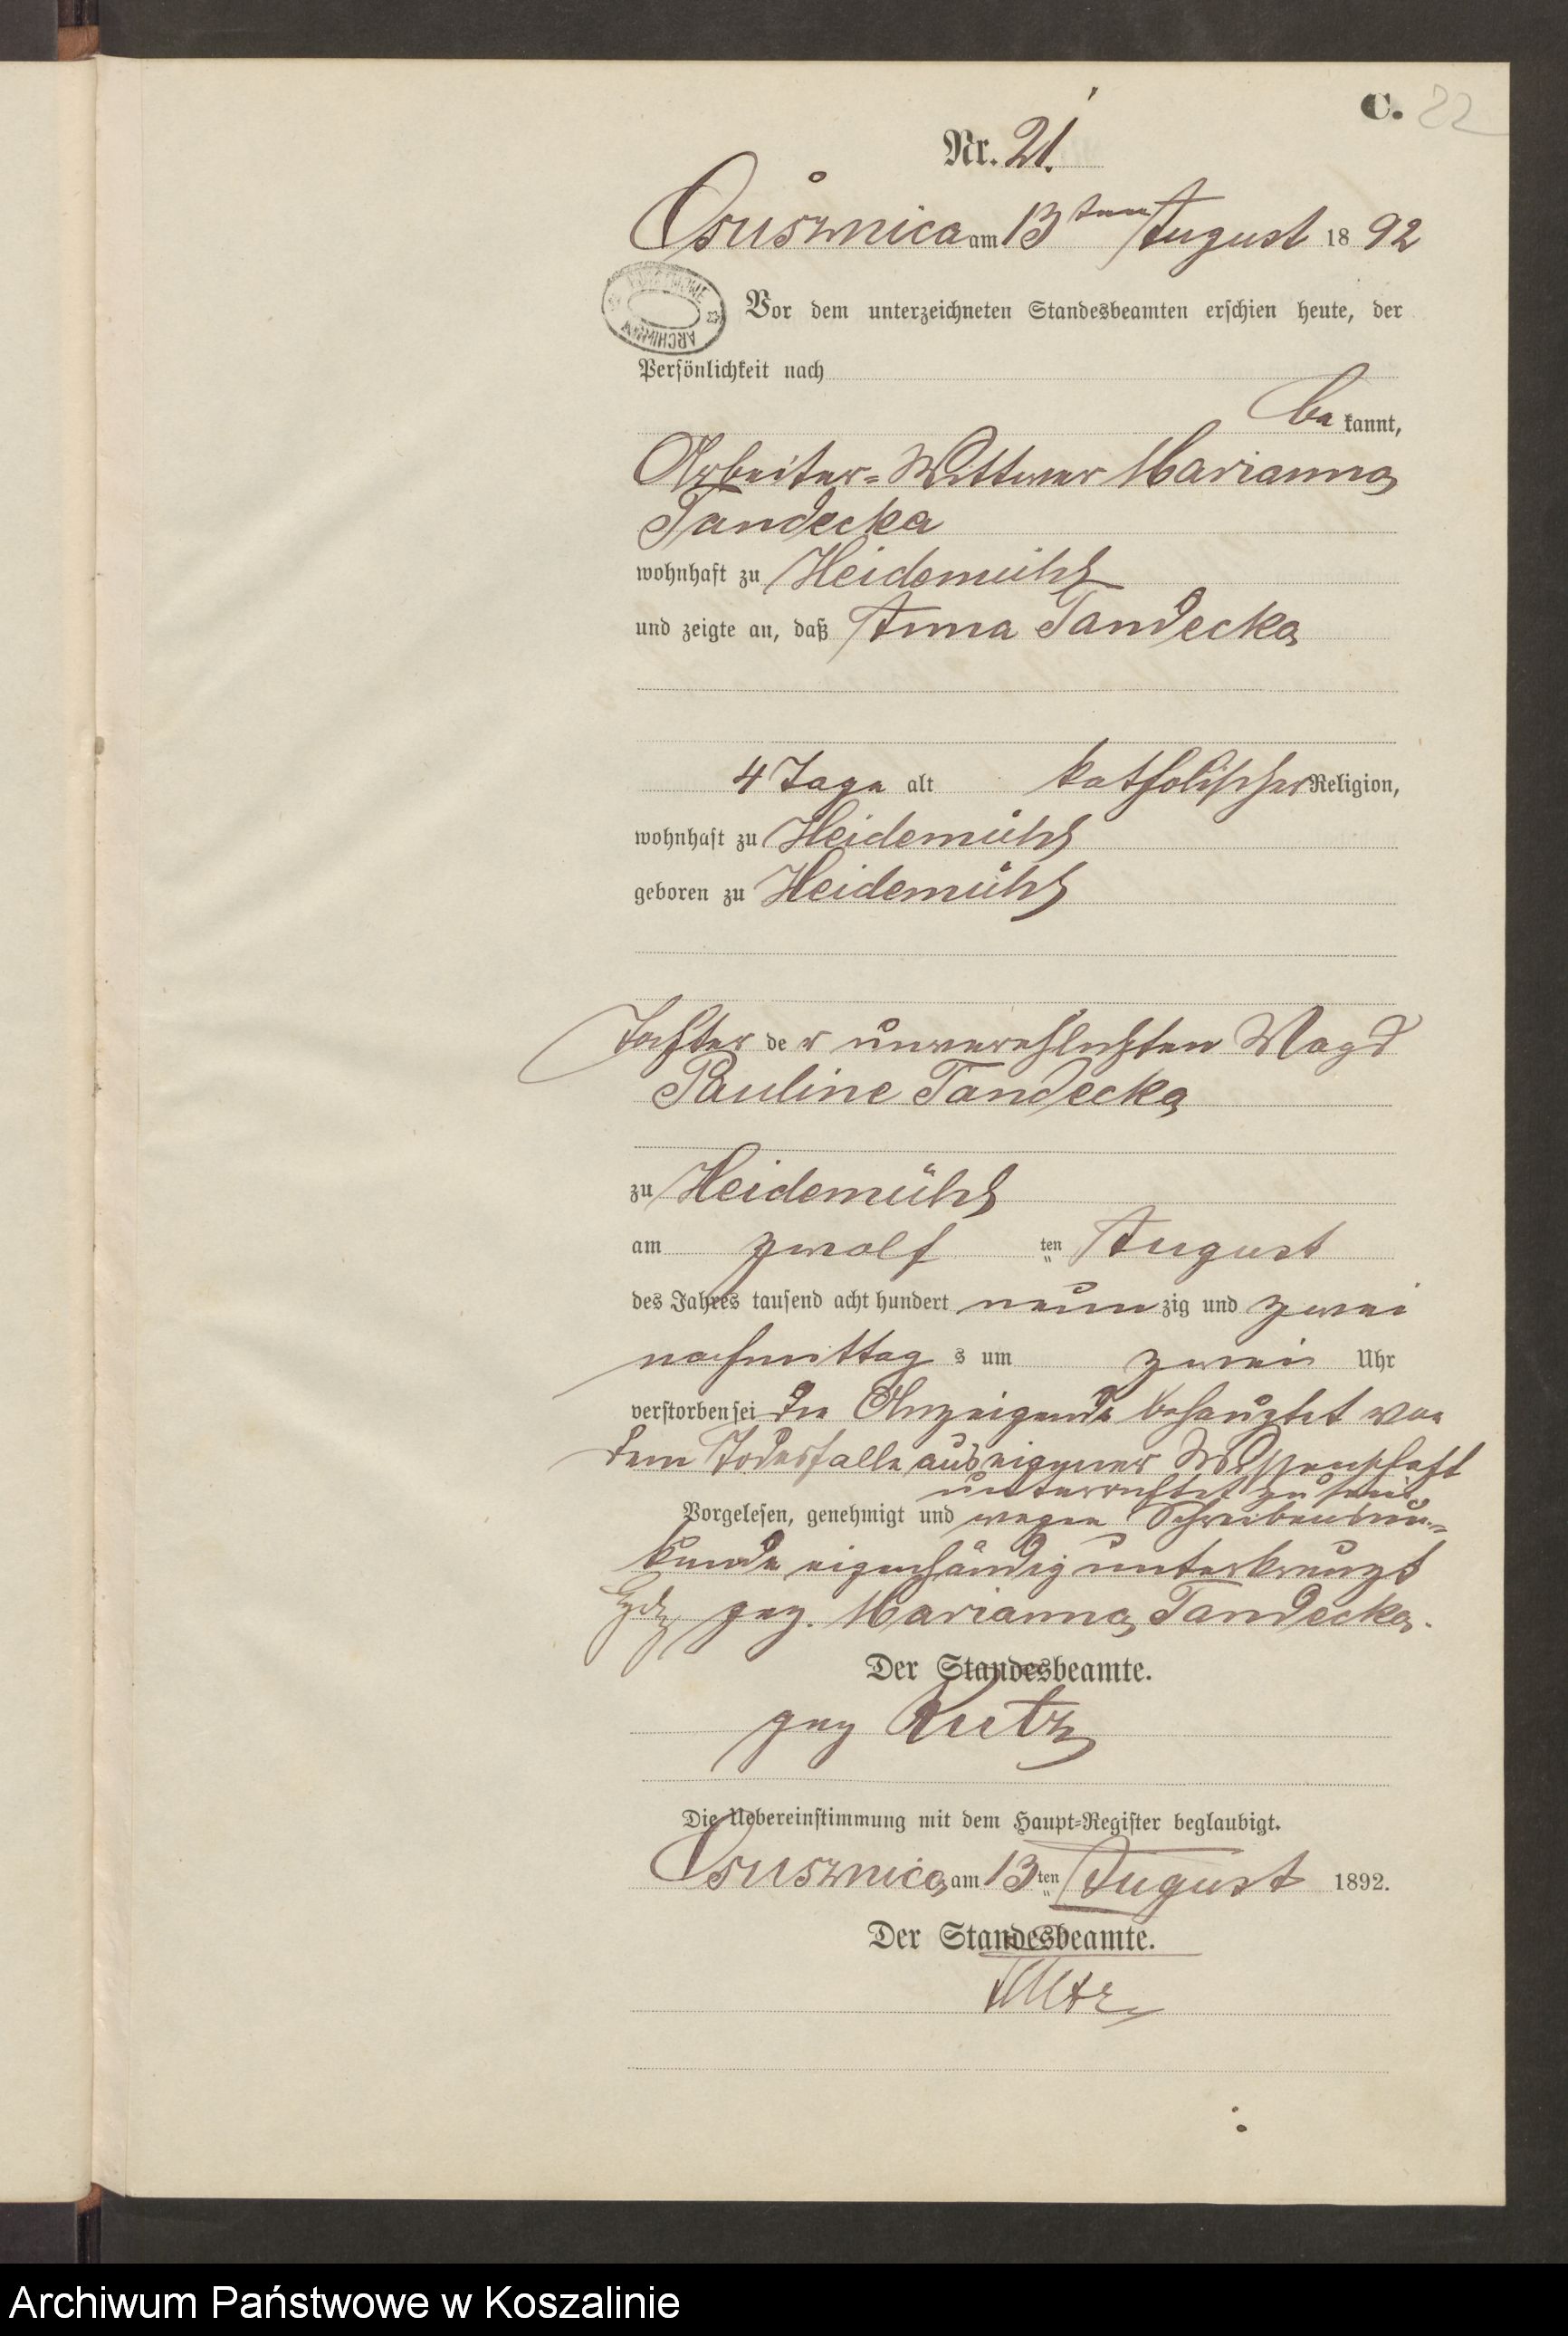 C. 22
Nr. 21.
Osusznica am 13ten August 18 92
ARCHIWUM
Vor dem unterzeichneten Standesbeamten erschien heute, der
Persönlichkeit nach
be kannt,
Arbeiter-Wittwer Marianna
Tandecka
wohnhaft zu Heidemühl
und zeigte an, daß Anna Tandecka
4 Tage alt katholischer Religion,
wohnhaft zu Heidemühl
geboren zu Heidemühl
Tochter de r unverehlichten Magd
Pauline Tandecka
zu Heidemühl
am zwölf ten August
des Jahres tausend acht hundert neun zig und zwei
nachmittag s um zwei Uhr
verstorben sei Die Anzeigende behauptet von
dem Todesfalle aus eigener Wissenschaft
unterrichtet zu sein
Vorgelesen, genehmigt und wegen Schreibensun-
kunde eigenhändig unterkreuzt
gez. Marianna Tandecka.
Der Standesbeamte.
gez Kutz
Die Uebereinstimmung mit dem Haupt-Register beglaubigt.
Osusznica am 13 ten August 1892.
Der Standesbeamte.
Kutz
Archiwum Państwowe w Koszalinie